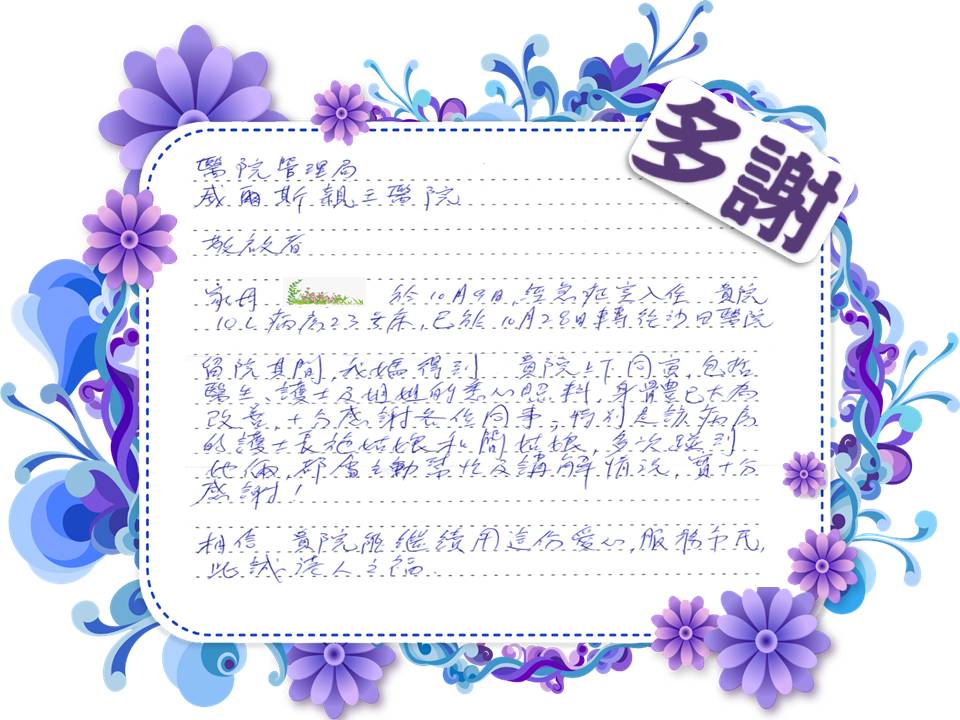 多謝
醫院管理局
威爾斯親王醫院
敬啟者
家母 於10月9日,經急症室入住 貴院
10L病房23號床,已於10月28日轉往沙田醫院
留院其間,我媽得到 貴院上下同寅,包括
醫生、護士及姐姐的悉心照料,身體已大為
改善,十分感謝各位同事,特別是該病房
的護士長施姑娘和簡姑娘,多次遇到
她倆,都會主動 及講解情況,實十分
感謝!
相信 貴院能繼續用這份愛心,服務市民,
此誠港人之福.